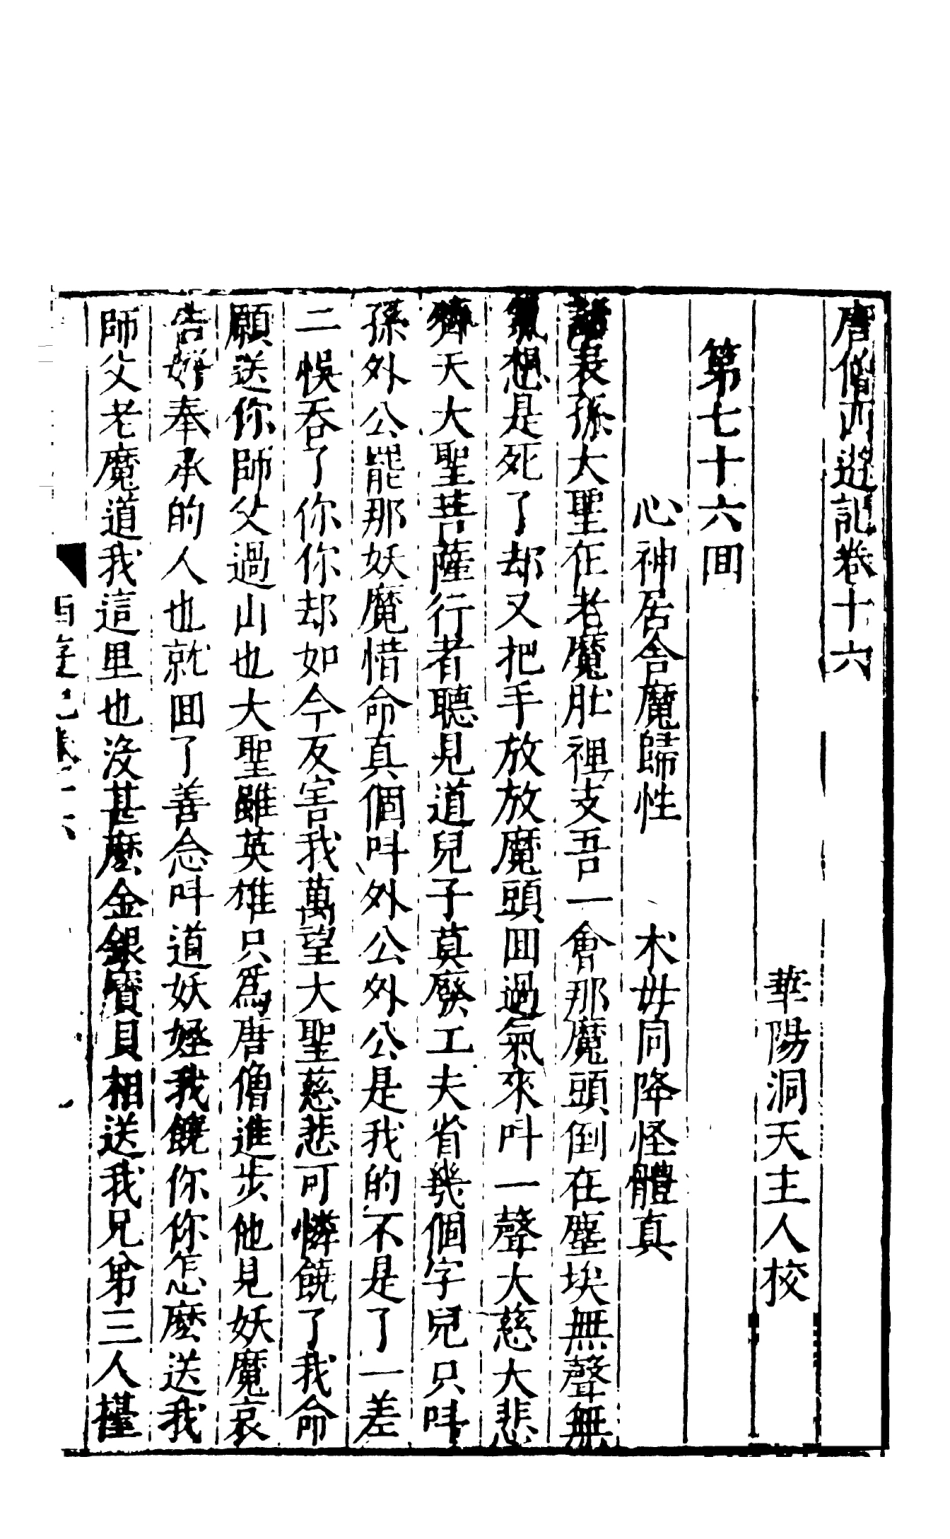 唐僧西遊記卷十六
華陽洞天主人校
第七十六囬
心神居舎魔歸性　木毋同降怪體真
話表孫大聖在老魔肚裡支吾一會那魔頭倒在塵埃無聲無
氣想是死了却又把手放放魔頭囬過氣來呌一聲大慈大悲
齊天大聖菩薩行者聽見道兒子莫廢工夫省幾個字兒只呌
孫外公罷那妖魔惜命真個呌外公外公是我的不是了一差
二悞吞了你你却如今反害我萬望大聖慈悲可憐饒了我命
願送你師父過山也大聖雖英雄只爲唐僧進步他見妖魔哀
告好奉承的人也就囬了善念呌道妖怪我饒你你怎麽送我
師父老魔道我這里也没甚麽金銀寳貝相送我兄弟三人擡
西遊記卷十六